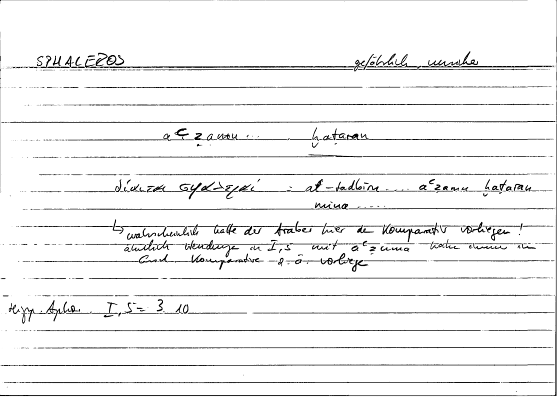 SPHALEROS gefährlich, unsicher
aʿẓamu ... ḫaṭaran
δίαιται σφαλεραί : at-tadbīru .... aʿẓamu ḫaṭaran
mina .....
↳ wahrscheinlich hatte der Araber hier den Komparativ vorliegen!
ähnlich Wendungen in I,5 mit aʿẓamu
Komparative o.ä. vorliege
Hipp. Aphor. I,5 = 3 10